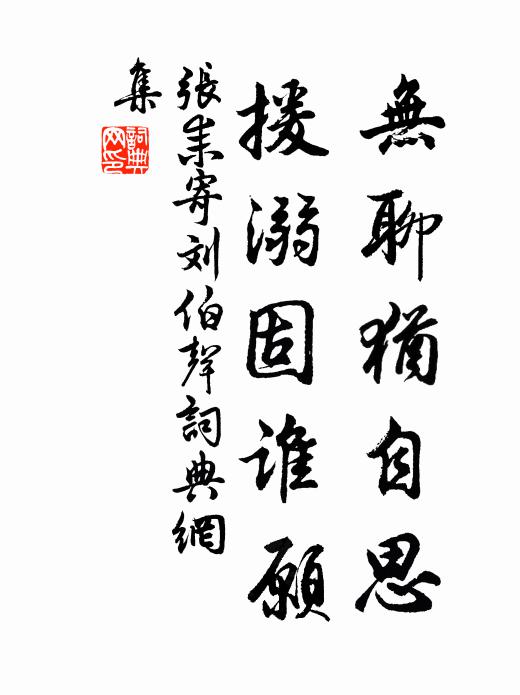 無聊猶自思
援溺固誰願
張耒寄刘伯聲詞典網
集
詞典网印